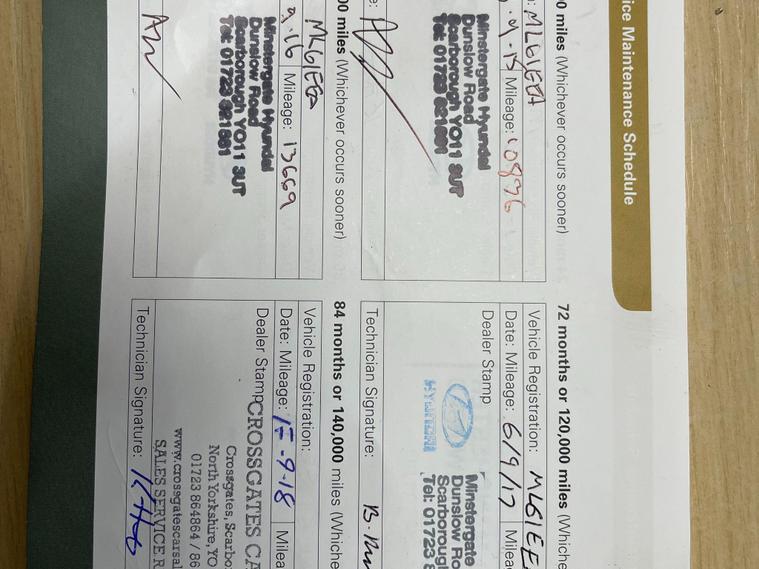 ice Maintenance Schedule
0 miles (Whichever occurs sooner)
ML61EEA
Mileage: 10876
Minstergate Hyundai
Dunslow Road
Scarborough YO11 3UT
Tel: 01723
e:
00 miles (Whichever occurs sooner)
9.16 Mileage: 13669
Minstergate Hyundai
Dunslow Road
Scarborough YO11 3UT
Tel: 01723
AW
72 months or 120,000 miles (Whiche
Vehicle Registration: ML61EE
Date: Mileage: 6/9/17 Mileag
Dealer Stamp
HYUNDAI
Minstergate
Dunslow Ro
Scarborough
Tel: 01723 8
Technician Signature: B.
84 months or 140,000 miles (Whiche
Vehicle Registration:
Date: Mileage: 15-9-18 Milea
Dealer Stamp
CROSSGATES CA
Crossgates, Scarbo
North Yorkshire, YO
01723 864864 / 86
www.crossgatescarsal
SALES SERVICE R
Technician Signature: